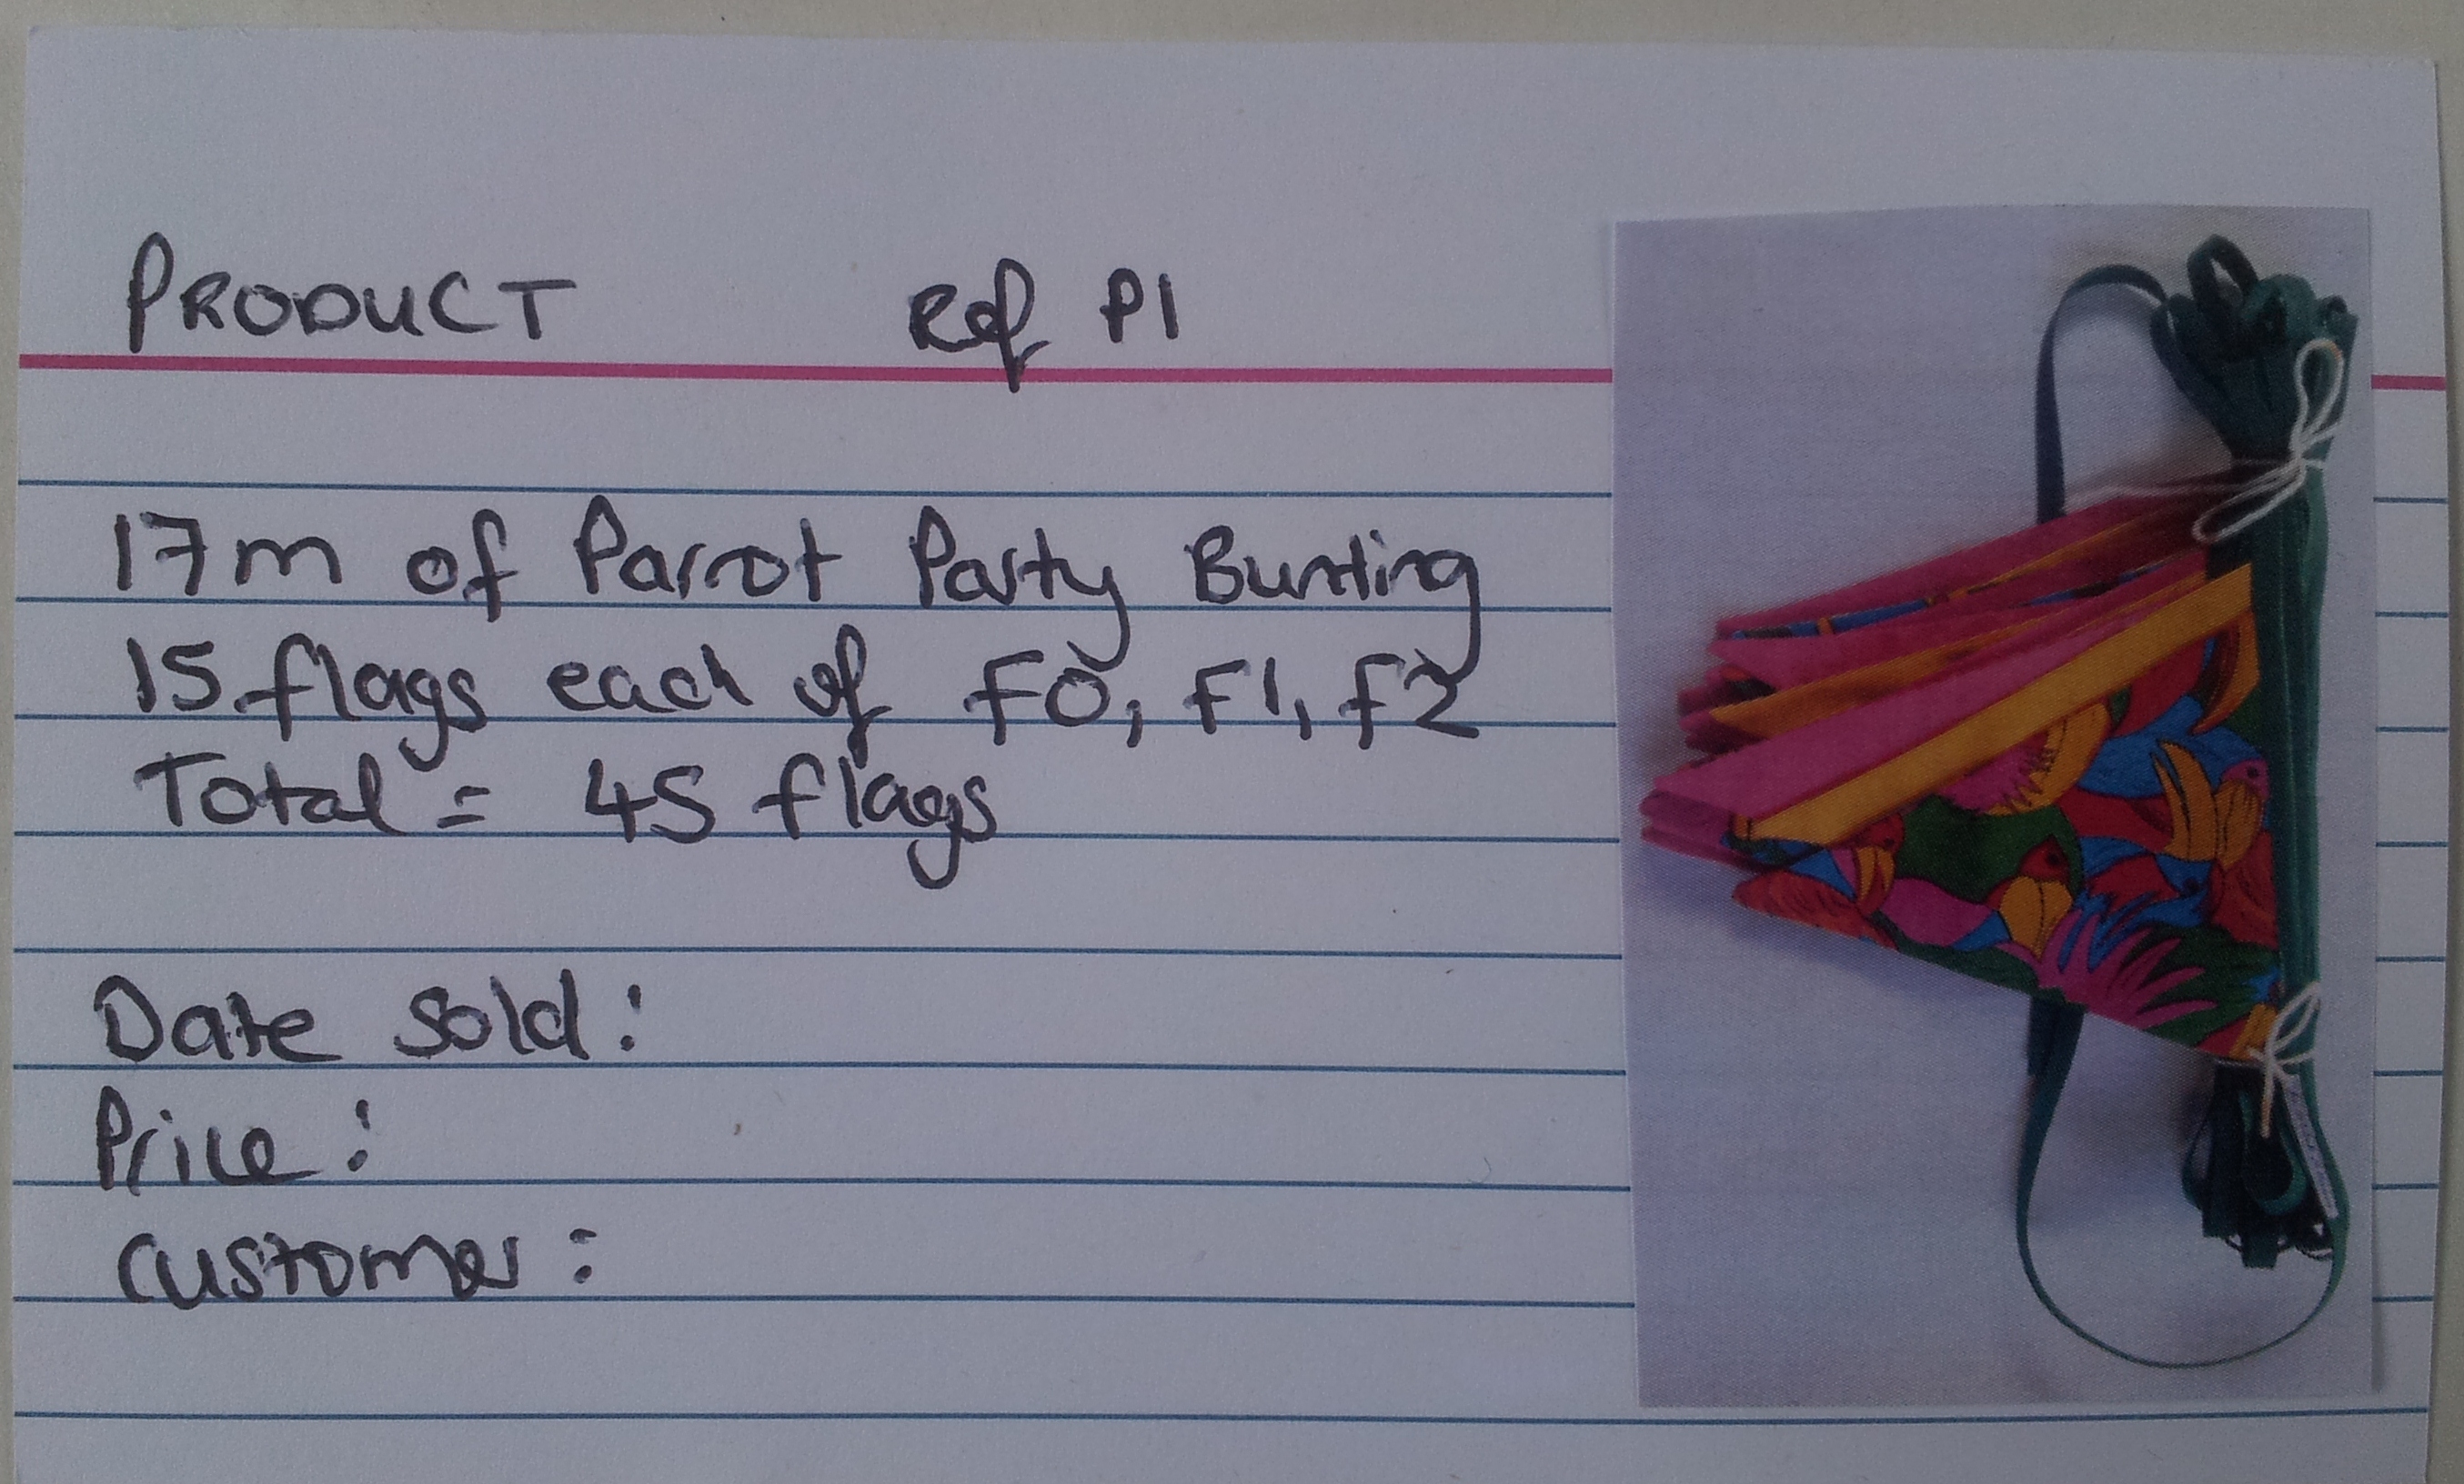 PRODUCT Ref P1
17m of Parrot Party Bunting
15 flags each of F0, F1, F2
Total = 45 flags
Date Sold:
Price:
Customer: